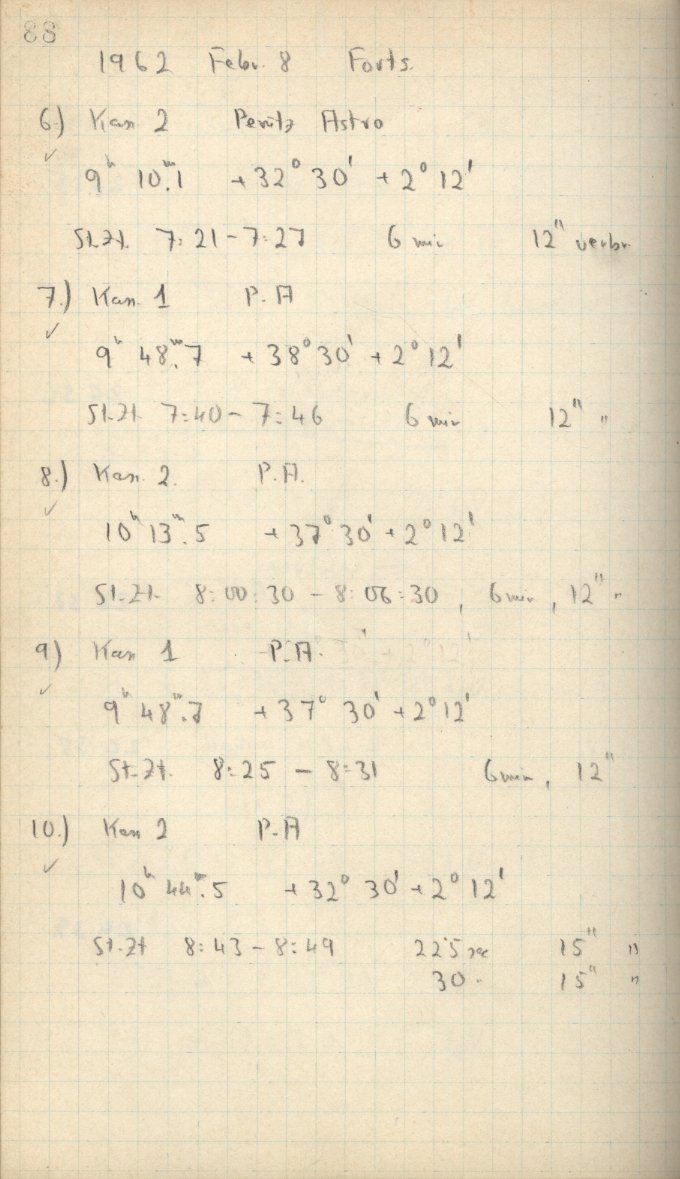 88
1962 Febr. 8 Forts.
6.) Kas 2 Perutz Astro
✓ 9ʰ 10ᵐ.1 +32° 30' +2° 12'
St.Zt. 7:21-7:27 6 min 12" verbr.
7.) Kas. 1 P.A
✓ 9ʰ 48ᵐ.7 +38° 30' +2° 12'
St.Zt. 7:40-7:46 6 min 12" "
8.) Kas. 2. P.A.
✓ 10ʰ 13ᵐ.5 +37° 30' +2° 12'
St.Zt. 8:00:30 - 8:06:30, 6 min, 12" "
9.) Kas 1 P.A.
✓ 9ʰ 48ᵐ.7 +37° 30' +2° 12'
St.Zt. 8:25 - 8:31 6 min, 12"
10.) Kas 2 P.A
✓ 10ʰ 44ᵐ.5 +32° 30' +2° 12'
St.Zt 8:43-8:49 225 sec 15" "
30 " 15" "